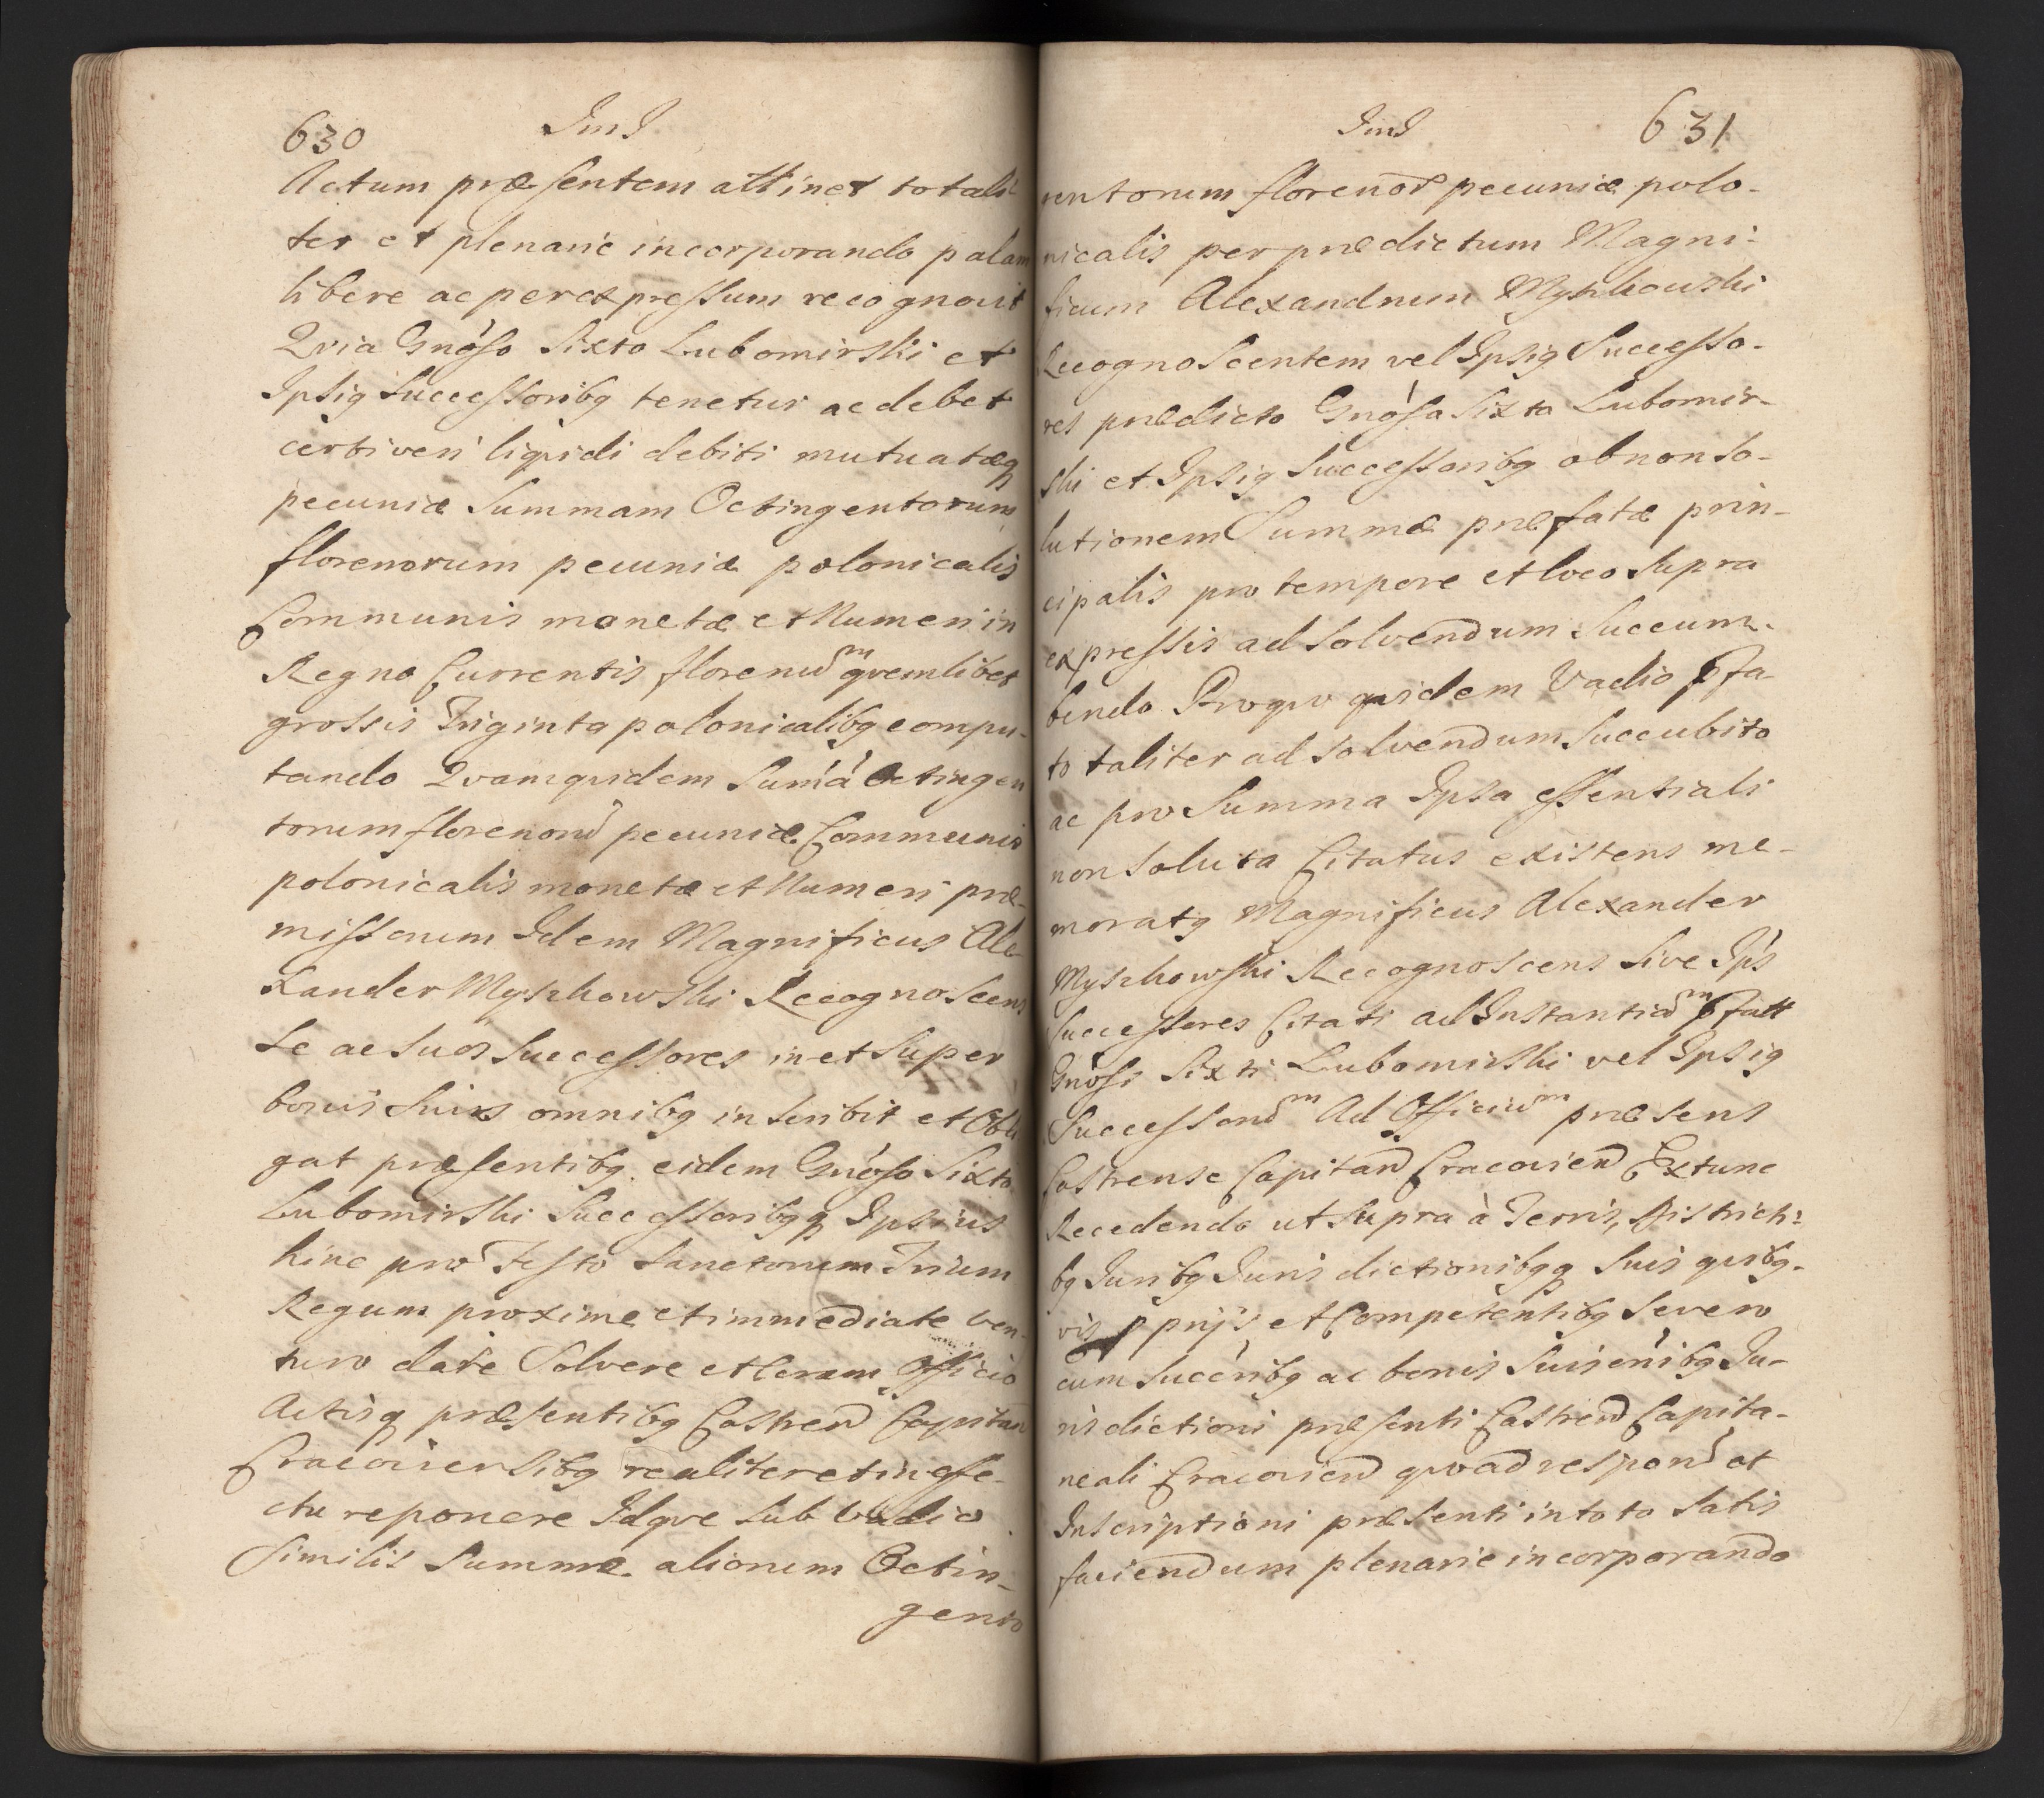 630
Actum præsentem attinet totali
ter et plenarie incorporando palam
libere ac per expressum recognovit
Qvia Gnoso Sixto Lubomirski et
Ipsiq Successoribq tenetur ac debet
certi veri liqvidi debiti mutuatæq
pecuniæ Summam Octingentorum
florenorum pecuniæ polonicalis
Communis monetæ et Numeri in
Regno Currentis florenum qvemlibet
grossis Triginta polonicalibq compu-
tando Qvamqvidem Suma Octingen
torum florenorum pecuniæ Communis
polonicalis monetæ et Numeri præ-
missorum Idem Magnificus Ale-
xander Myszkowski Recognoscens
Se ac Suos Successores in et Super
bonis Suis omnibq inscribit et Obli
gat præsentibq eidem Gnoso Sixto
Lubomirski Successoribqq Ipsius
hinc pro Festo Sanctorum Trium
Regum proxime et immediate ven-
turo dare Solvere et Coram Officio
Actisq præsentibq Castren Capitan
Cracoviensibq realiter et in effe-
ctu reponere Idqve Sub Vadio
Similis Summæ aliorum Octin-
gento
631
rentorum florenor pecuniæ polo-
nicalis per prædictum Magni-
ficum Alexandrum Myszkowski
Recognoscentem vel Ipsiq Successo-
res prædicto Gnoso Sixto Lubomir-
ski et Ipsiq Successoribq ob non so-
lutionem Summæ præfatæ prin-
cipalis pro tempore et loco Supra
expressis ad Solvendum Succum-
bendo Proqvo qvidem Vadio pfa-
to taliter ad solvendum Succubito
ac pro Summa Ipsa essentiali
non soluta Citatus existens me-
moratq Magnificus Alexander
Myszkowski Recognoscens Sive Ips
Successores Citati ad Instantiam pfatt
Gnosi Sixti Lubomirski vel Ipsiq
Successorum Ad Officium præsens
Castrense Capitan Cracovien Extunc
Recedendo ut supra à Terris, Districti-
bq Juribq Jurisdictionibqq Suis qvibq-
vis pprijs et Competentibq Severo
cum Succribq ac bonis Suis enibq Ju-
risdictioni præsenti Castren Capita-
neali Cracovien qvoad respond et
Inscriptioni præsenti in toto Satis
faciendum plenarie incorporando